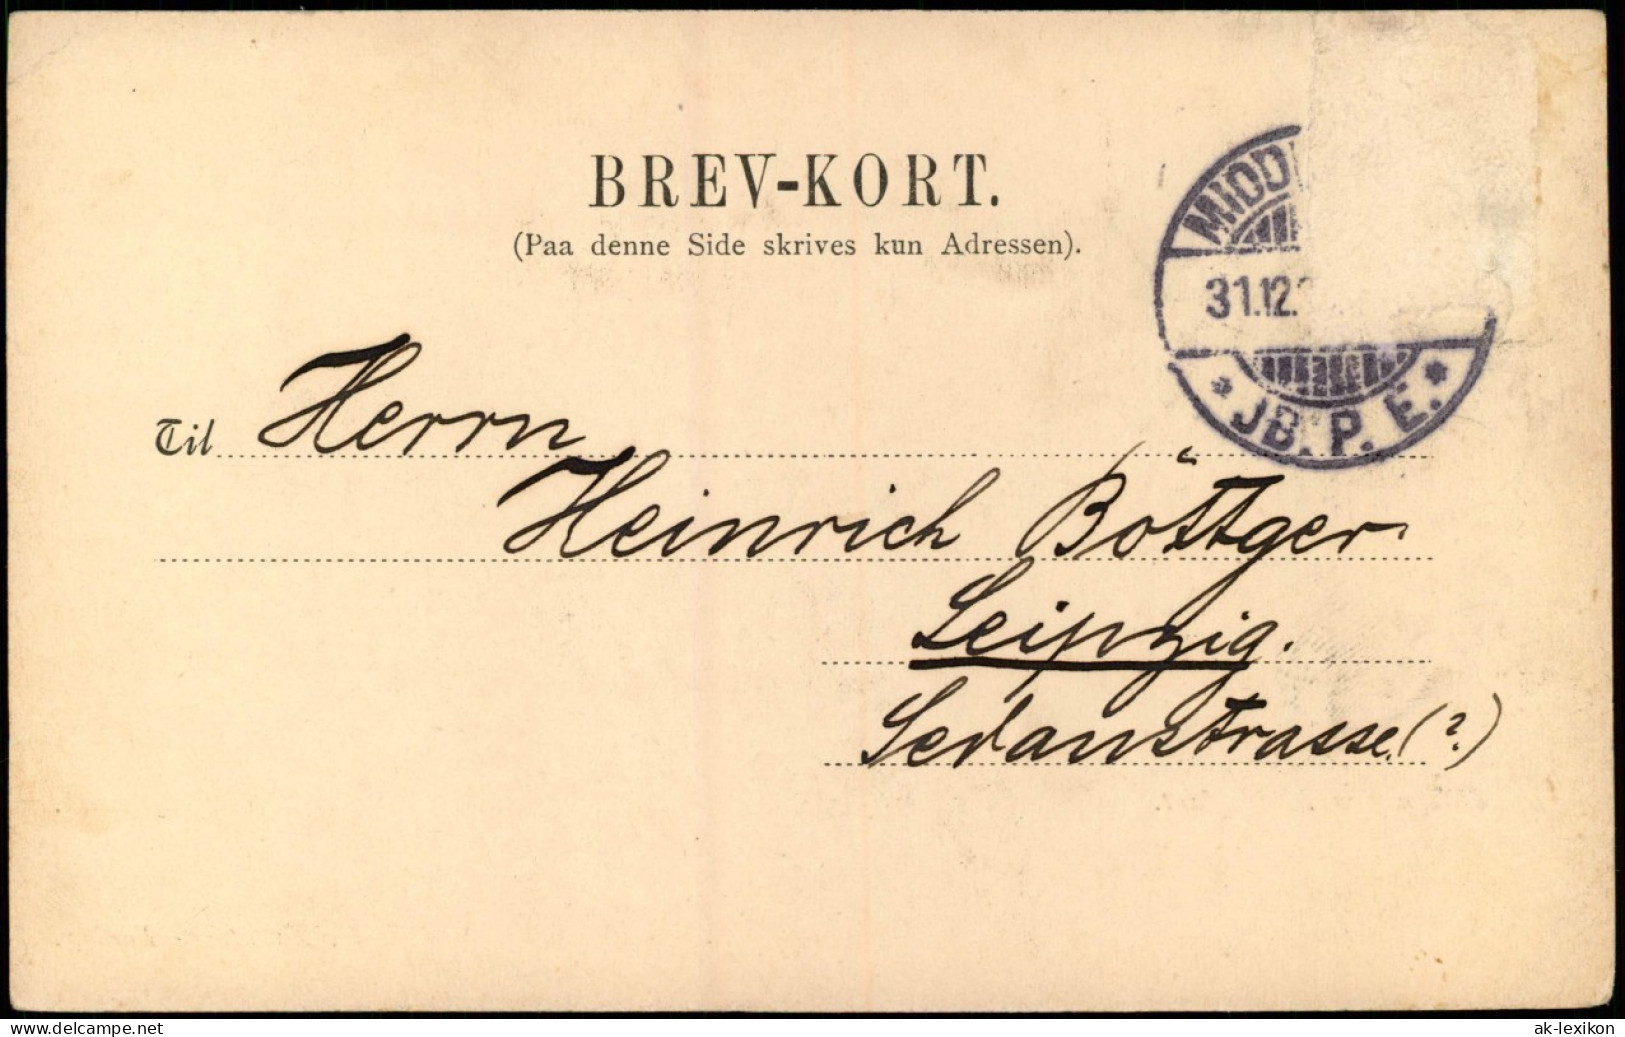 BREV-KORT.
(Paa denne Side skrives kun Adressen).
31.12.
* JB. P. E. *
Til Herrn
Heinrich Böttger.
Leipzig.
Sedanstrasse (?)
www.delcampe.net
ak-lexikon